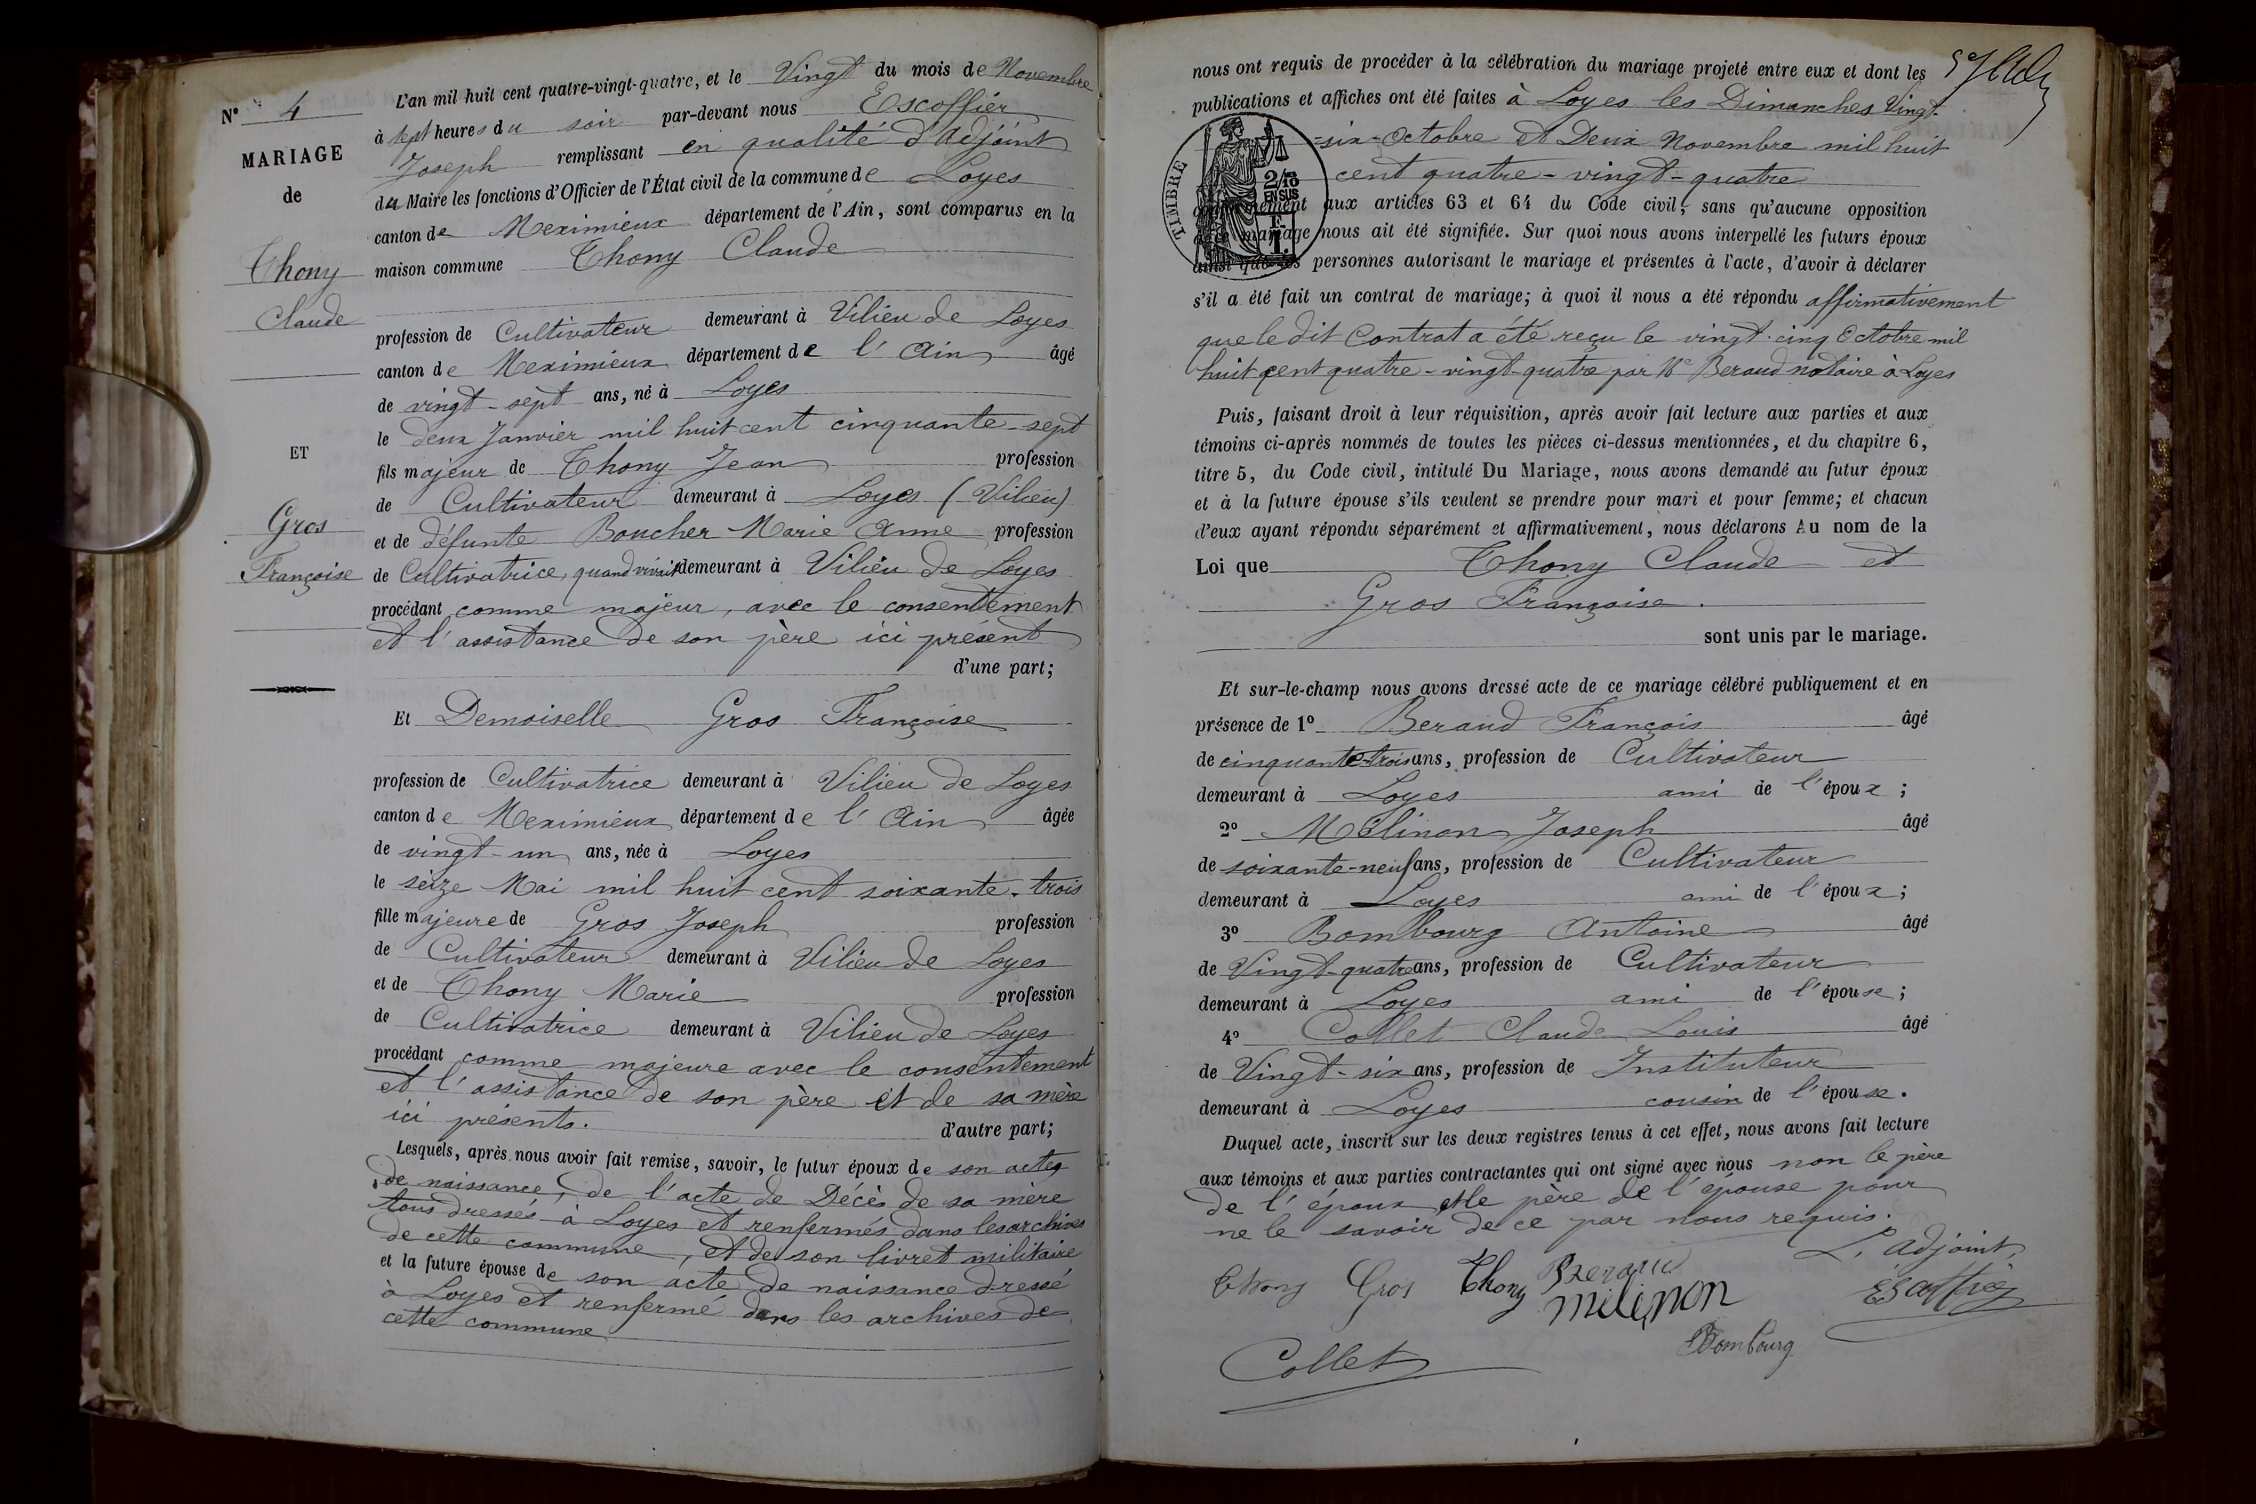 N° 4
MARIAGE
de
Thony
Claude
ET
Gros
Françoise
L'an mil huit cent quatre-vingt-quatre, et le Vingt du mois de Novembre
à sept heures du soir par-devant nous Escoffier
Joseph remplissant en qualité d'adjoint
du Maire les fonctions d'Officier de l'État civil de la commune de Loyes
canton de Meximieux département de l'Ain, sont comparus en la
maison commune Thony Claude
profession de Cultivateur demeurant à Vilieu de Loyes
canton de Meximieux département de l'Ain âgé
de vingt-sept ans, né à Loyes
le deux Janvier mil huit cent cinquante-sept
fils majeur de Thony Jean profession
de Cultivateur demeurant à Loyes (Vilieu)
et de défunte Boucher Marie Anne profession
de Cultivatrice, quand vivait demeurant à Vilieu de Loyes
procédant comme majeur, avec le consentement
et l'assistance de son père ici présent
d'une part;
Et Demoiselle Gros Françoise
profession de Cultivatrice demeurant à Vilieu de Loyes
canton de Meximieux département de l'Ain âgée
de vingt-un ans, née à Loyes
le seize Mai mil huit cent soixante-trois
fille majeure de Gros Joseph profession
de Cultivateur demeurant à Vilieu de Loyes
et de Thony Marie profession
de Cultivatrice demeurant à Vilieu de Loyes
procédant comme majeure avec le consentement
et l'assistance de son père et de sa mère
ici présents.
d'autre part;
Lesquels, après nous avoir fait remise, savoir, le futur époux de son actes
de naissance, de l'acte de Décès de sa mère
tous dressés à Loyes et renfermés dans les archives
de cette commune, et de son livret militaire
et la future épouse de son acte de naissance dressé
à Loyes et renfermé dans les archives de
cette commune
nous ont requis de procéder à la célébration du mariage projeté entre eux et dont les
publications et affiches ont été faites à Loyes les Dimanches Vingt-
-six-Octobre et Deux Novembre mil huit
cent quatre-vingt-quatre
TIMBRE
2/10
EN SUS
conformément aux articles 63 et 64 du Code civil, sans qu'aucune opposition
mariage nous ait été signifiée. Sur quoi nous avons interpellé les futurs époux
ainsi que les personnes autorisant le mariage et présentes à l'acte, d'avoir à déclarer
s'il a été fait un contrat de mariage; à quoi il nous a été répondu affirmativement
que le dit Contrat a été reçu le vingt-cinq Octobre mil
huit cent quatre-vingt-quatre par Me Beraud notaire à Loyes
Puis, faisant droit à leur réquisition, après avoir fait lecture aux parties et aux
témoins ci-après nommés de toutes les pièces ci-dessus mentionnées, et du chapitre 6,
titre 5, du Code civil, intitulé Du Mariage, nous avons demandé au futur époux
et à la future épouse s'ils veulent se prendre pour mari et pour femme; et chacun
d'eux ayant répondu séparément et affirmativement, nous déclarons Au nom de la
Loi que Thony Claude et
Gros Françoise.
sont unis par le mariage.
Et sur-le-champ nous avons dressé acte de ce mariage célébré publiquement et en
présence de 1° Beraud François âgé
de cinquante-trois ans, profession de Cultivateur
demeurant à Loyes ami de l'époux;
2° Mélinon Joseph âgé
de soixante-neuf ans, profession de Cultivateur
demeurant à Loyes ami de l'époux;
3° Bombourg Antoine âgé
de Vingt-quatre ans, profession de Cultivateur
demeurant à Loyes ami de l'épouse;
4° Collet Claude Louis âgé
de Vingt-six ans, profession de Instituteur
demeurant à Loyes cousin de l'épouse.
Duquel acte, inscrit sur les deux registres tenus à cet effet, nous avons fait lecture
aux témoins et aux parties contractantes qui ont signé avec nous non le père
de l'époux et le père de l'épouse pour
ne le savoir de ce par nous requis.
L'adjoint,
Thony Gros Thony
milinon
Escoffier
Bombourg
Collet